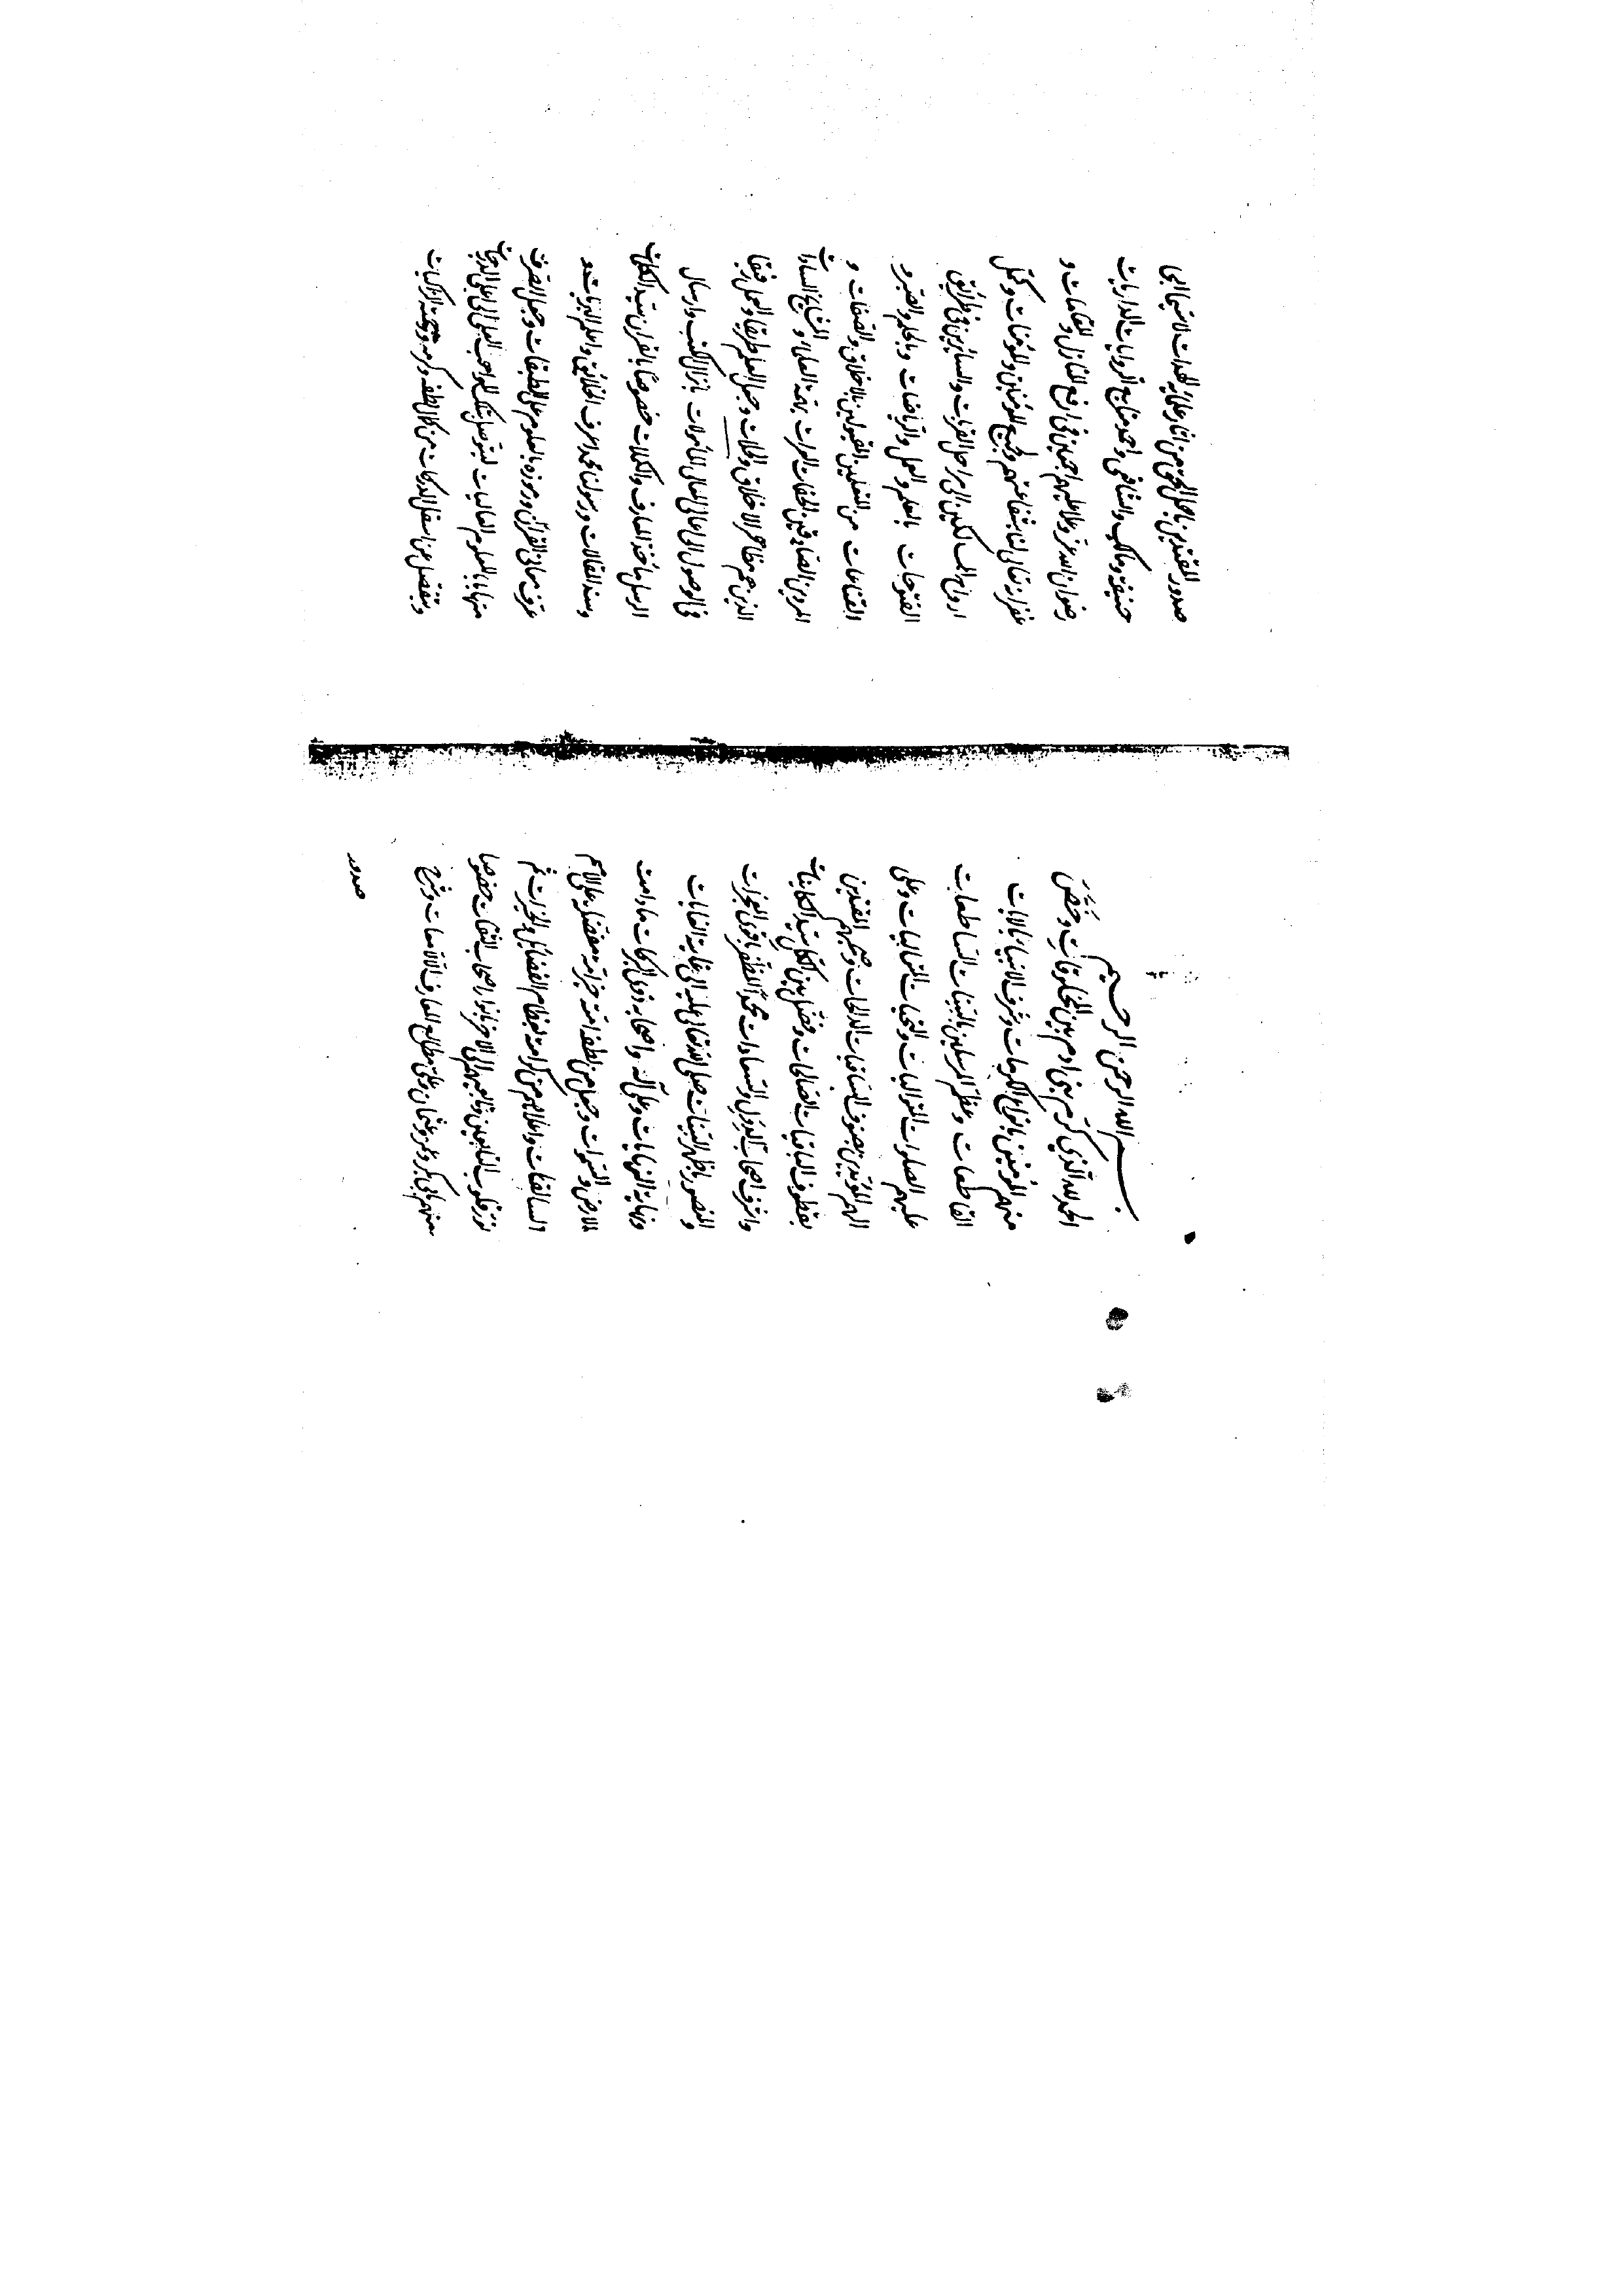 بسم الله الرحمن الرحيم
الحمد لله الذي كرّم بني ادم بين المخلوقات وخصّ
منهم المؤمنين بانواع الكرمات وشرف الانبياء بالايات
القاطعات وعظم المرسلين بالبينات الساطعات
عليهم الصلوات المتواليات والتحيات المتتاليات وعلى
الهم المؤيدين بصنوف السابقات الدالحات وصحبهم المقتدين
بقطوف الباقيات الصالحات وفضّل من بين الكل سيد الكاينات
واشرف اصحاب الدول والسعادات محمد المظفر باقوى المعجزات
والمنصور باظهر البينات صلى الله تعالى عليه الى غاية الغايات
ونهاية النهايات وعلى آله واصحابه ذوى البركات ما دامت
الارض والسموات وجعل من لطفه امته خير امة مفضلة على الامم
السالفات واعلاهم من كرامته بنظام الفضائل والخيرات ثم
نور قلوب التابعين وتابعيهم الى الاخر بانوار اصحاب الثقات خصوصا
منهم ابى بكر وعمر وعثمان وعلى مطالع المعارف اللامعات وشرح
صدور
صدور المقتدين باجمل المجتهدين ائمة الهدات لا سيما ابى
حنيفة ومالك والشافعى واحمد منابع الروايات الدرايات
رضوان الله عز وعلا عليهم اجمعين فى ارفع المنازل والمقامات و
غفرانه تعالى لنا بشفاعتهم ولجميع المؤمنين والمؤمنات وكمّل
ارواح السالكين الى مراحل القربات والسائرين فى طرائق
الفتوحات بالعلم والعمل والرياضات والحلم والصبر و
القناعات من المتصفين المقبولين بالاخلاق والصفات و
المريدين الصادقين الخفيات العرات بقية العلماء والمشايخ السادات
الذين هم مظاهر الاخلاق والحالات وجعل العلم طريقا والعمل رفيقا
فى الوصول الى اعالى المعالى المأمولات بانزال الكتب وارسال
الرسل مأخذ المعارف والكمالات خصوصا بالقرآن سيد الكلمات
وسند المقالات ورسولنا محمد اعرف الخلائق واعلم البريات و
عرف معانى القرآن ورموزه بالعلوم على الطبقات وجعل الصرف
منها بابا للعلوم العاليات ليتوصل بتلك المواهب العلى الى اعلى الدرجات
ويتفصل عن اسفل الدركات من كمال لطفه وكرمه وبحكمته الزاكيات